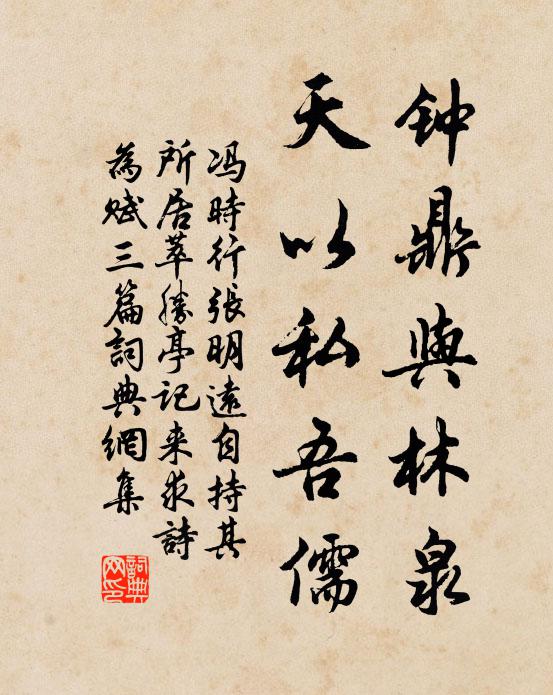 钟鼎與林泉
天以私吾儒
冯時行張明遠自持其
所居萃勝亭记来求詩
為赋三篇詞典網集
詞典网印